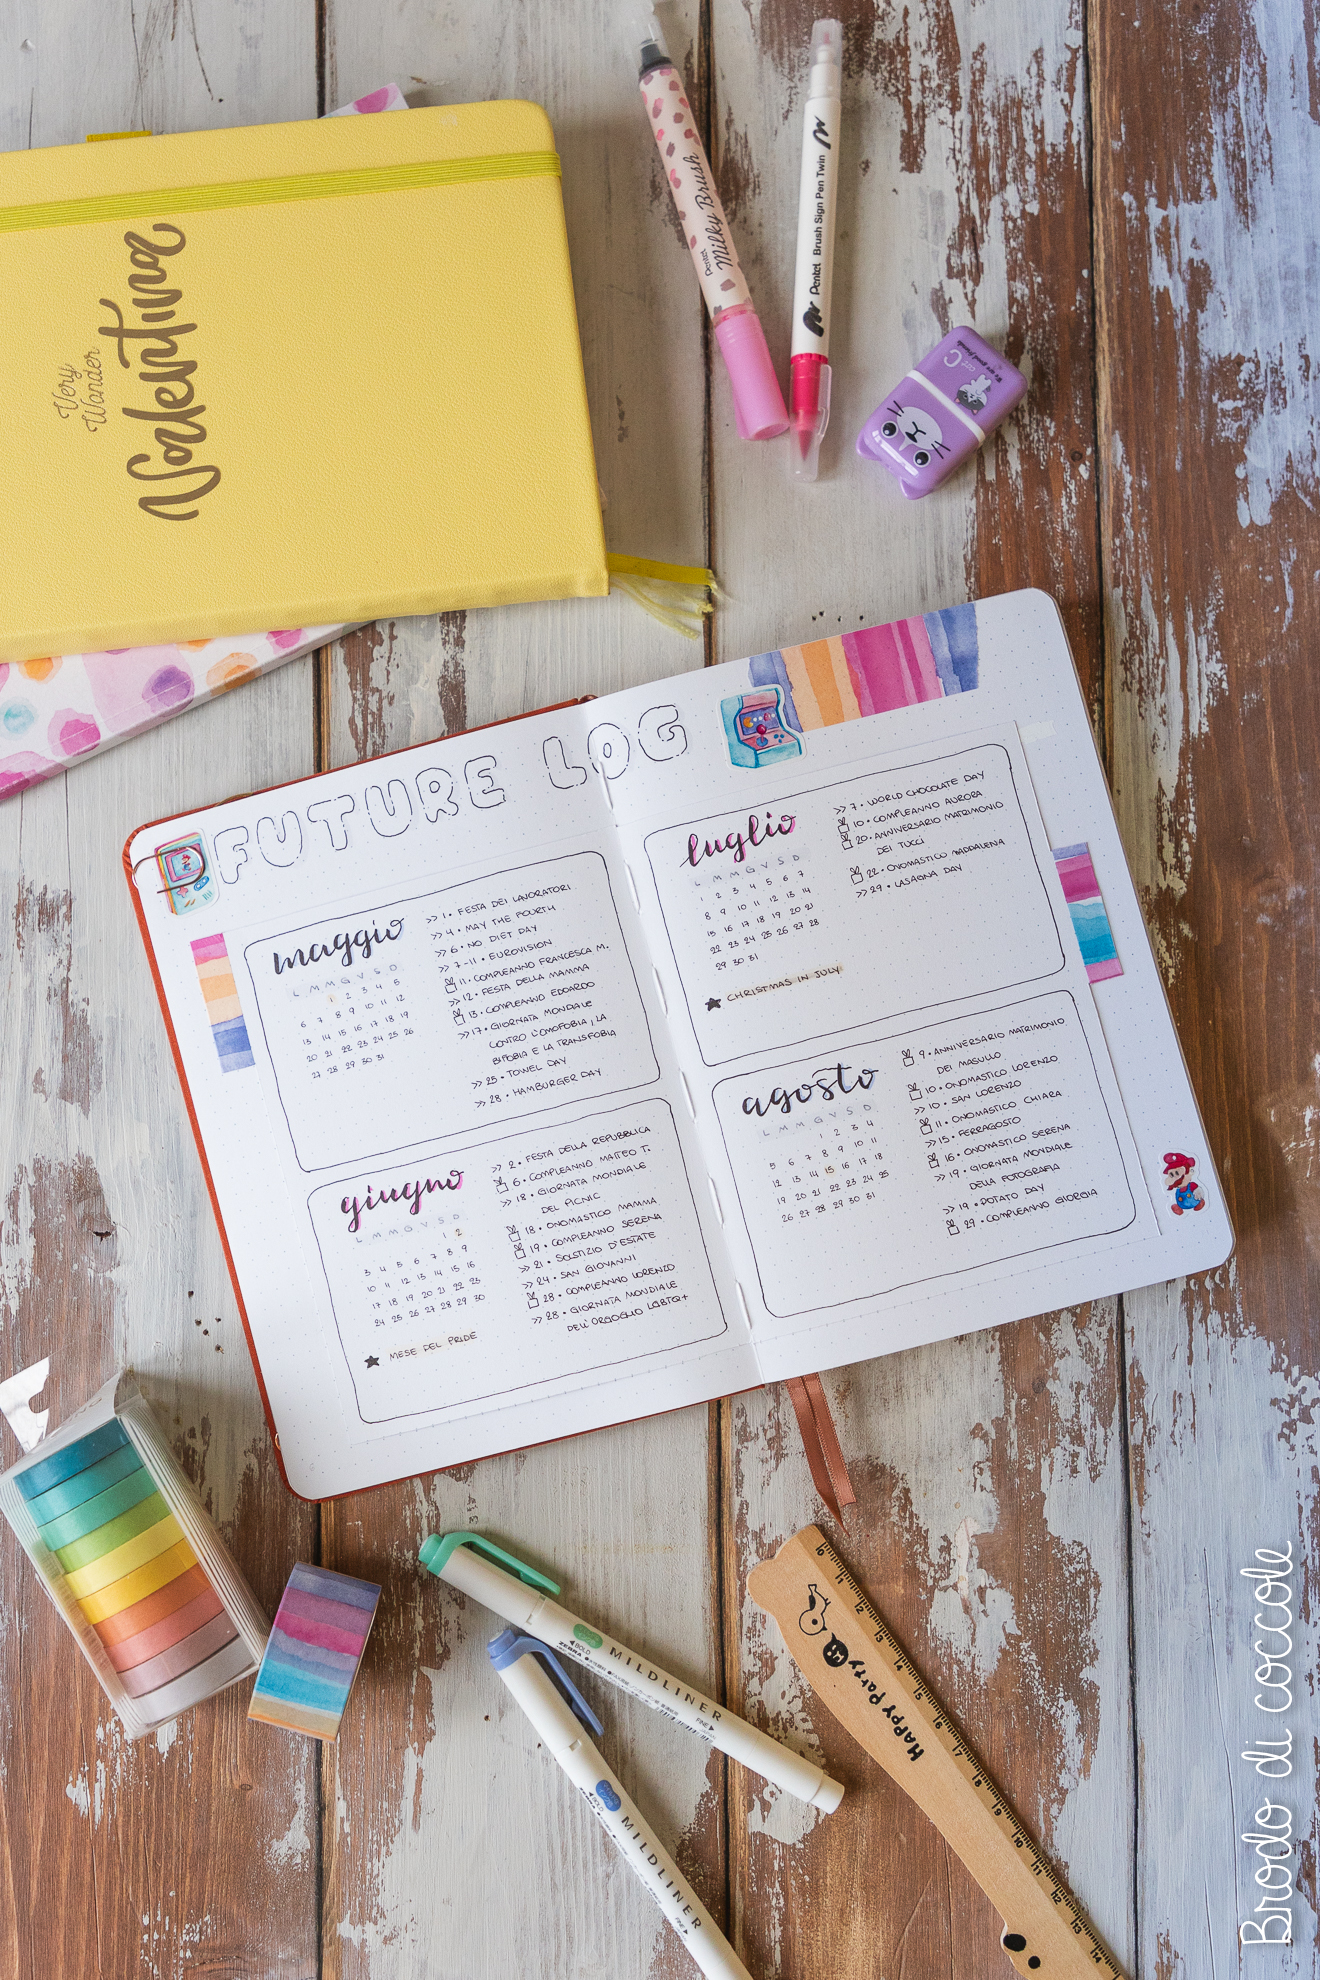 Very
Wonder
Valentina
Pentel Milky Brush
Pentel Brush Sign Pen Twin
FUTURE LOG
maggio
L M M G V S D
1 2 3 4 5
6 7 8 9 10 11 12
13 14 15 16 17 18 19
20 21 22 23 24 25 26
27 28 29 30 31
>> 1 • FESTA DEI LAVORATORI
>> 4 • MAY THE FOURTH
>> 6 • NO DIET DAY
>> 7-11 • EUROVISION
11 • COMPLEANNO FRANCESCA M.
>> 12 • FESTA DELLA MAMMA
13 • COMPLEANNO EDOARDO
>> 17 • GIORNATA MONDIALE
CONTRO L'OMOFOBIA, LA
BIFOBIA E LA TRANSFOBIA
>> 25 • TOWEL DAY
>> 28 • HAMBURGER DAY
giugno
L M M G V S D
1 2
3 4 5 6 7 8 9
10 11 12 13 14 15 16
17 18 19 20 21 22 23
24 25 26 27 28 29 30
★ MESE DEL PRIDE
>> 2 • FESTA DELLA REPUBBLICA
6 • COMPLEANNO MATTEO T.
>> 18 • GIORNATA MONDIALE
DEL PICNIC
18 • ONOMASTICO MAMMA
19 • COMPLEANNO SERENA
>> 21 • SOLSTIZIO D'ESTATE
>> 24 • SAN GIOVANNI
28 • COMPLEANNO LORENZO
>> 28 • GIORNATA MONDIALE
DELL'ORGOGLIO LGBTQ+
luglio
L M M G V S D
1 2 3 4 5 6 7
8 9 10 11 12 13 14
15 16 17 18 19 20 21
22 23 24 25 26 27 28
29 30 31
★ CHRISTMAS IN JULY
>> 7 • WORLD CHOCOLATE DAY
10 • COMPLEANNO AURORA
20 • ANNIVERSARIO MATRIMONIO
DEI TUCCI
22 • ONOMASTICO MADDALENA
>> 29 • LASAGNA DAY
agosto
L M M G V S D
1 2 3 4
5 6 7 8 9 10 11
12 13 14 15 16 17 18
19 20 21 22 23 24 25
26 27 28 29 30 31
9 • ANNIVERSARIO MATRIMONIO
DEI MASULLO
10 • ONOMASTICO LORENZO
>> 10 • SAN LORENZO
11 • ONOMASTICO CHIARA
>> 15 • FERRAGOSTO
16 • ONOMASTICO SERENA
>> 19 • GIORNATA MONDIALE
DELLA FOTOGRAFIA
>> 19 • POTATO DAY
29 • COMPLEANNO GIORGIA
BOLD
ZEBRA
MILDLINER
FINE
BOLD
MILDLINER
FINE
Happy Party
0 1 2 3 4 5 6 7 8 9 10 11 12 13 14
Brodo di coccole